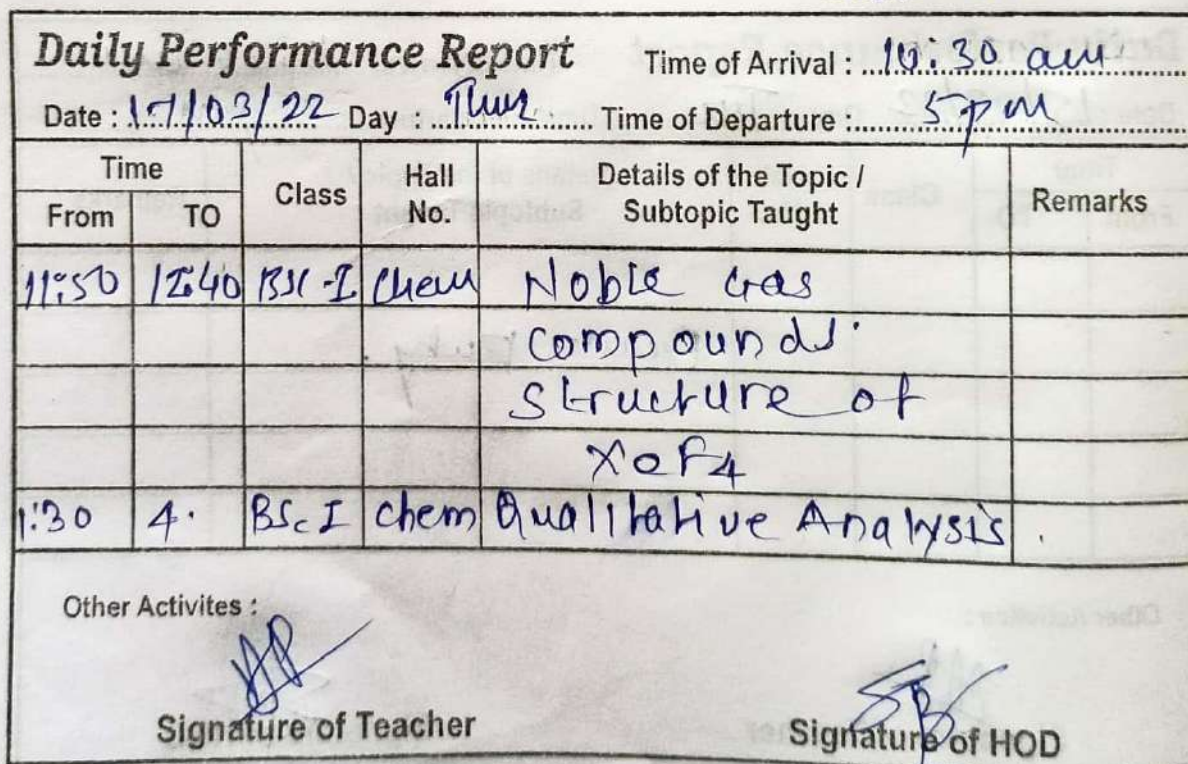 Daily Performance Report Time of Arrival : 10:30 am
Date : 17/03/22 Day : Thur Time of Departure : 5 pm
Time Class Hall No. Details of the Topic / Subtopic Taught Remarks
From TO
11:50 12:40 BSC-I Chem Noble Gas
compounds.
Structure of
XeF4
1:30 4. BSc I chem Qualitative Analysis.
Other Activites :
Signature of Teacher Signature of HOD